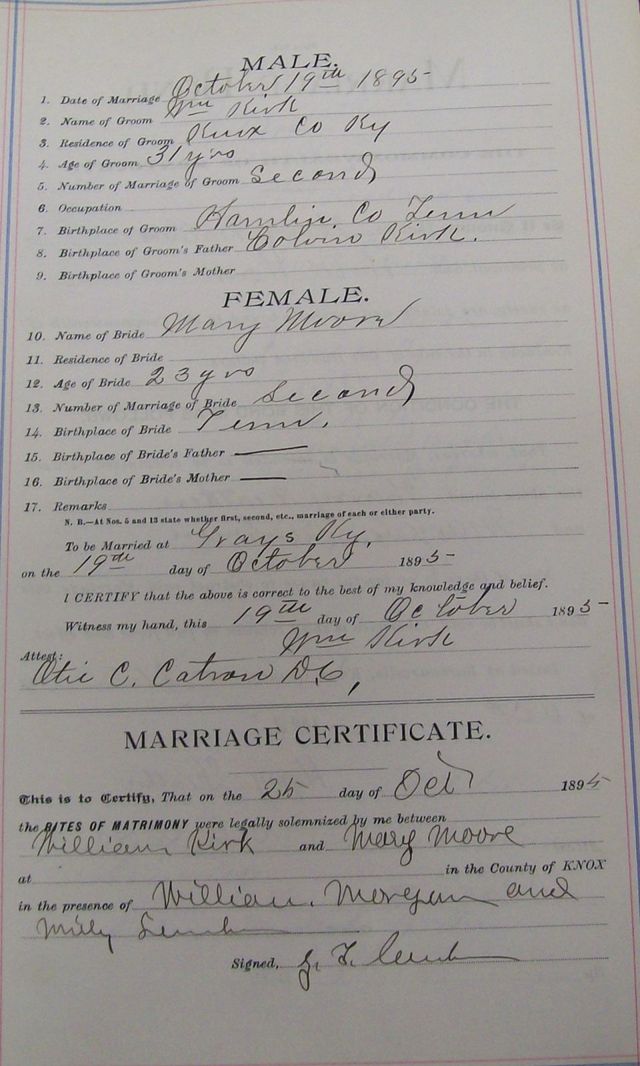 MALE.
1. Date of Marriage October 19th 1895
2. Name of Groom Wm Kirk
3. Residence of Groom Knox Co Ky
4. Age of Groom 31 yrs
5. Number of Marriage of Groom Second
6. Occupation
7. Birthplace of Groom Hamlin Co Tenn
8. Birthplace of Groom's Father Colvin Kirk.
9. Birthplace of Groom's Mother
FEMALE.
10. Name of Bride Mary Moore
11. Residence of Bride
12. Age of Bride 23 yrs
13. Number of Marriage of Bride Second
14. Birthplace of Bride Tenn.
15. Birthplace of Bride's Father —
16. Birthplace of Bride's Mother —
17. Remarks
N. B.—At Nos. 5 and 13 state whether first, second, etc., marriage of each or either party.
To be Married at Grays Ky,
on the 19th day of October 1895
I CERTIFY that the above is correct to the best of my knowledge and belief.
Witness my hand, this 19th day of October 1895
Wm Kirk
Attest:
Otie C. Catron D.C,
MARRIAGE CERTIFICATE.
This is to Certify, That on the 25 day of Oct 1895
the RITES OF MATRIMONY were legally solemnized by me between
William Kirk and Mary Moore
at in the County of KNOX
in the presence of William. Morgan and
Milly
Signed,